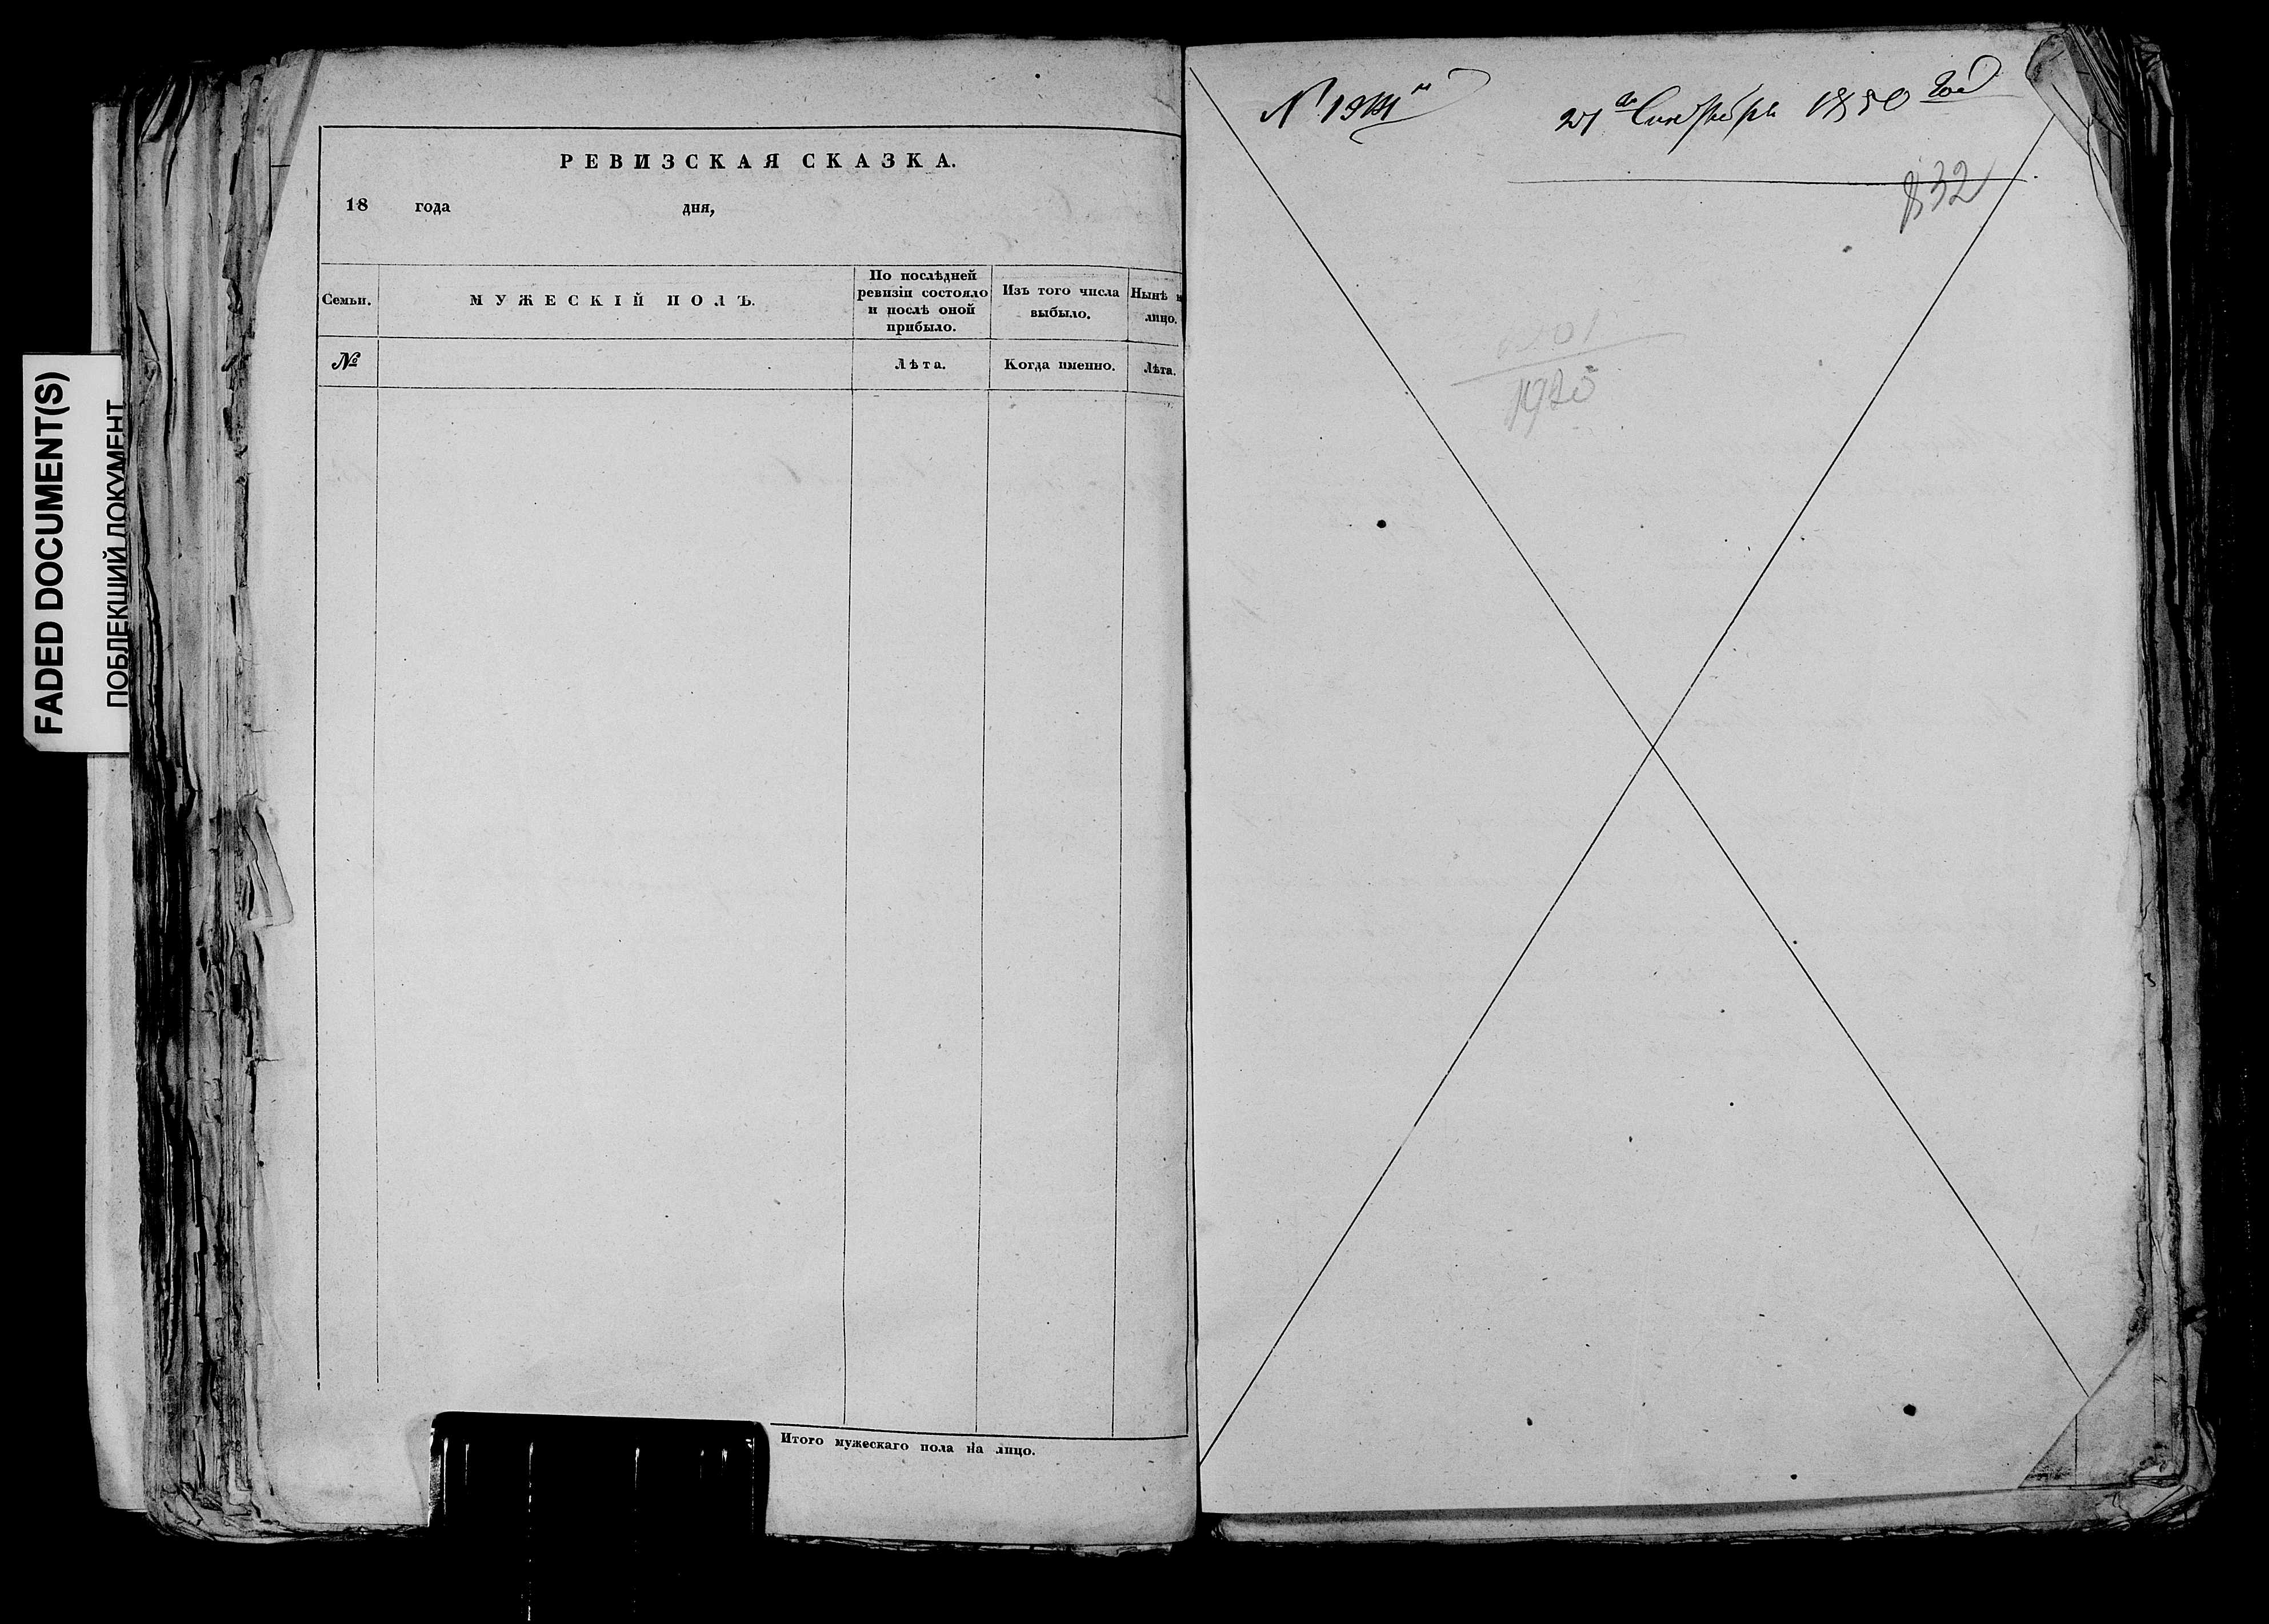 FADED DOCUMENT(S)
ПОБЛЕКШИЙ ДОКУМЕНТ
РЕВИЗСКАЯ СКАЗКА.
18 года дня,
Семьи.
МУЖЕСКІЙ ПОЛЪ.
По послѣдней
ревизіи состояло
и послѣ оной
прибыло.
Изъ того числа
выбыло.
Нынѣ н
лицо.
№
Лѣта.
Когда именно.
Лѣта.
Итого мужескаго пола на лицо.
21го Сентября 1850 год
832